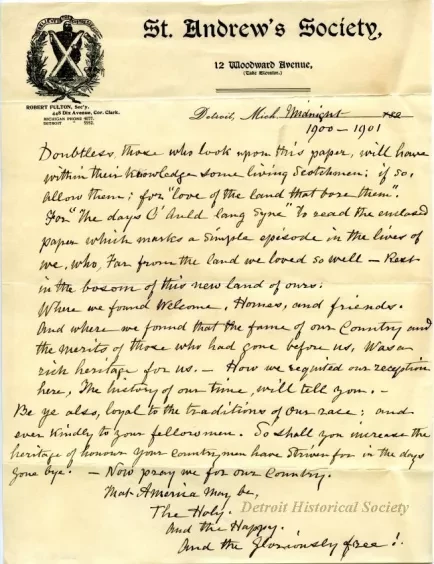 St. Andrew's Society,
12 Woodward Avenue,
(Take Elevator.)
ROBERT FULTON, Sec'y.
448 Dix Avenue, Cor. Clark.
MICHIGAN PHONE 4877.
DETROIT " 5592.
Detroit, Mich. Midnight
1900-1901
Doubtless, those who look upon this paper, will have
within their knowledge some living Scotchmen; if so,
allow them; for "love of the land that bore them".
For "The days O' Auld lang Syne" To read the enclosed
paper which marks a simple episode in the lives of
we, who, Far from the land we loved so well — Rest
in the bosom of this new land of ours:
Where we found Welcome, Homes, and friends.
And where we found that the fame of our Country and
the merits of those who had gone before us, Was a
rich heritage for us. — How we requited our reception
here, The history of our time, will tell you. —
Be ye also, loyal to the traditions of our race; and
ever kindly to your fellowmen. So shall you increase the
heritage of honour your Countrymen have striven for in the days
gone bye. — Now pray we for our Country.
That America may be,
The Holy.
And the Happy.
And the Gloriously free!.
Detroit Historical Society